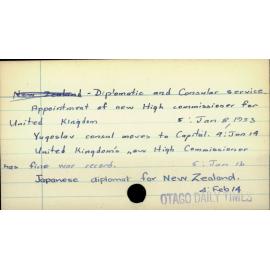 New Zealand - Diplomatic and Consular service
Appointment of new High commissioner for
United Kingdom 5: Jan 8, 1953
Yugoslav consul moves to Capital. 4: Jan 14
United Kingdom's new High Commissioner
has fine war record. 5: Jan 16
Japanese diplomat for New Zealand.
4: Feb 14
OTAGO DAILY TIMES